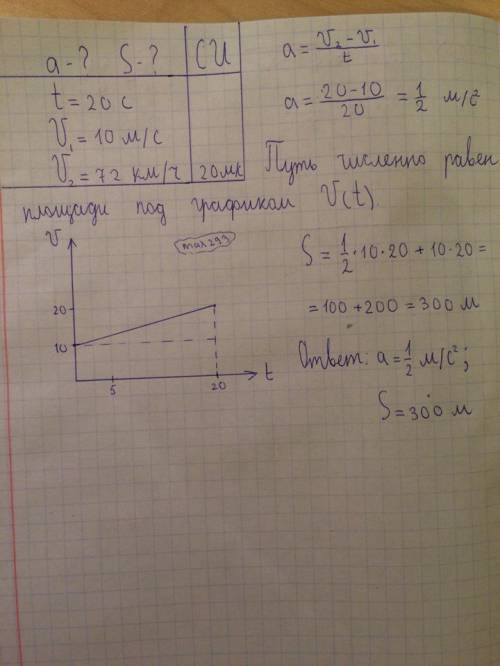 a-? S-? СИ
t = 20 с
V₁ = 10 м/с
V₂ = 72 км/ч 20м/с
a = (V₂ - V₁)/t
a = (20-10)/20 = 1/2 м/с²
Путь численно равен
площади под графиком V(t).
S = 1/2 · 10 · 20 + 10 · 20 =
= 100 + 200 = 300 м
Ответ: a = 1/2 м/с²;
S = 300 м
V
max293
20
10
5
20
t